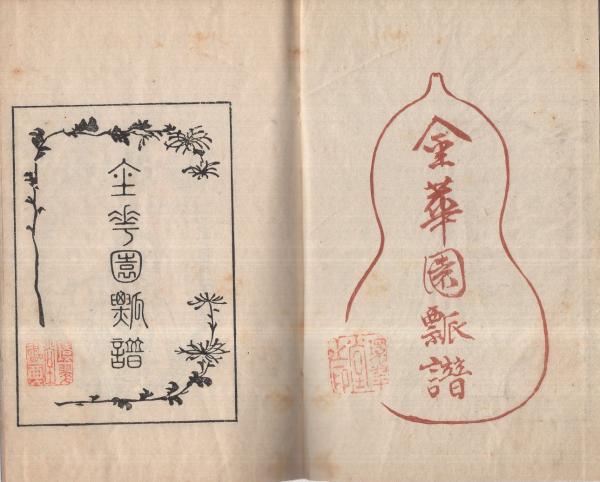 金華園瓢譜
金花園瓢譜